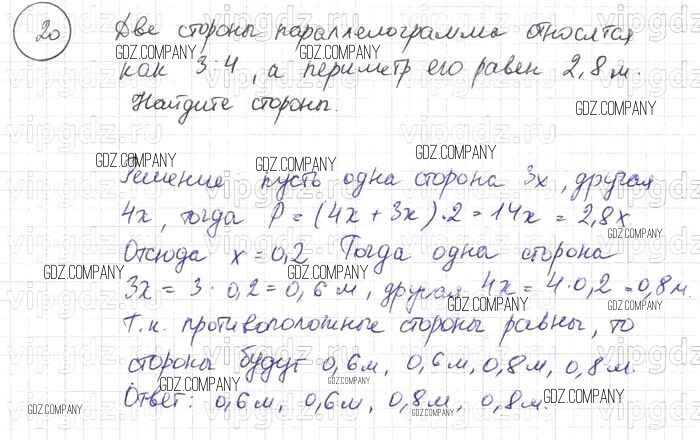 20 Две стороны параллелограмма относятся
как 3:4, а периметр его равен 2,8 м.
Найдите стороны.
Решение пусть одна сторона 3х, другая
4х, тогда P = (4х + 3х)·2 = 14х = 2,8х
Отсюда х = 0,2 Тогда одна сторона
3х = 3·0,2 = 0,6 м, другая 4х = 4·0,2 = 0,8 м.
Т.к. противоположные стороны равны, то
стороны будут 0,6 м, 0,6 м, 0,8 м, 0,8 м.
Ответ: 0,6 м, 0,6 м, 0,8 м, 0,8 м.
GDZ.COMPANY
vipgdz.ru